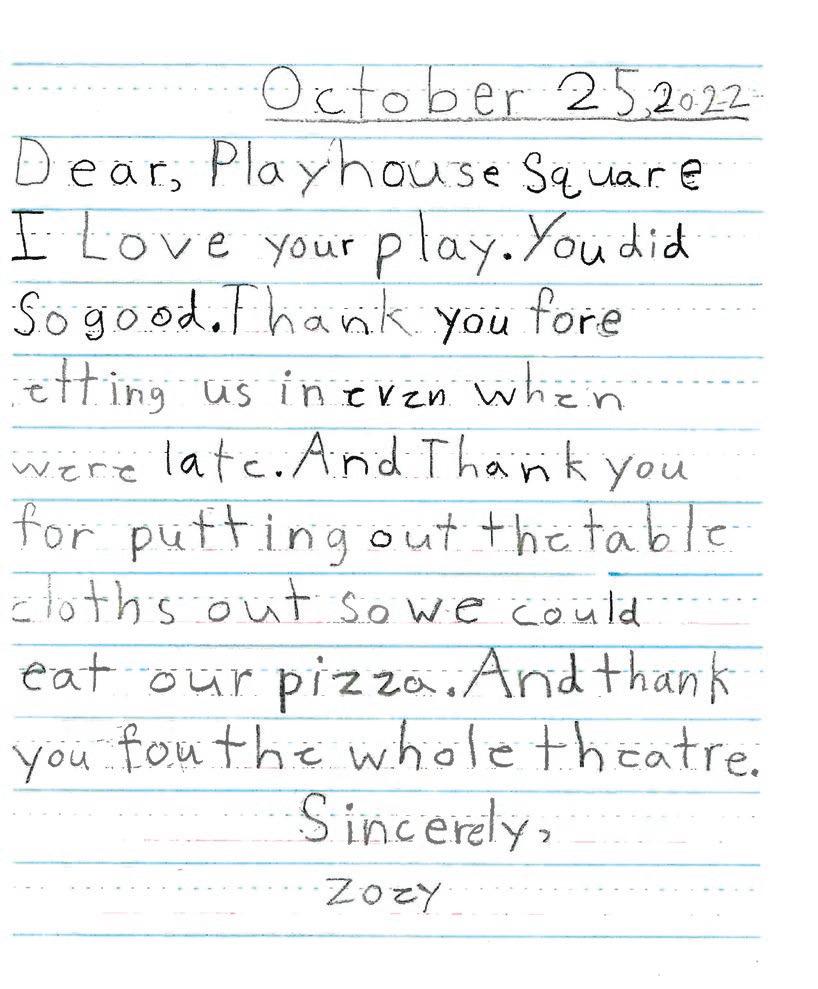 October 25, 2022
Dear, Playhouse Square
I Love your play. You did
So good. Thank you fore
etting us in even when
were late. And Thank you
for putting out the table
cloths out so we could
eat our pizza. And thank
you fou the whole theatre.
Sincerely,
Zoey